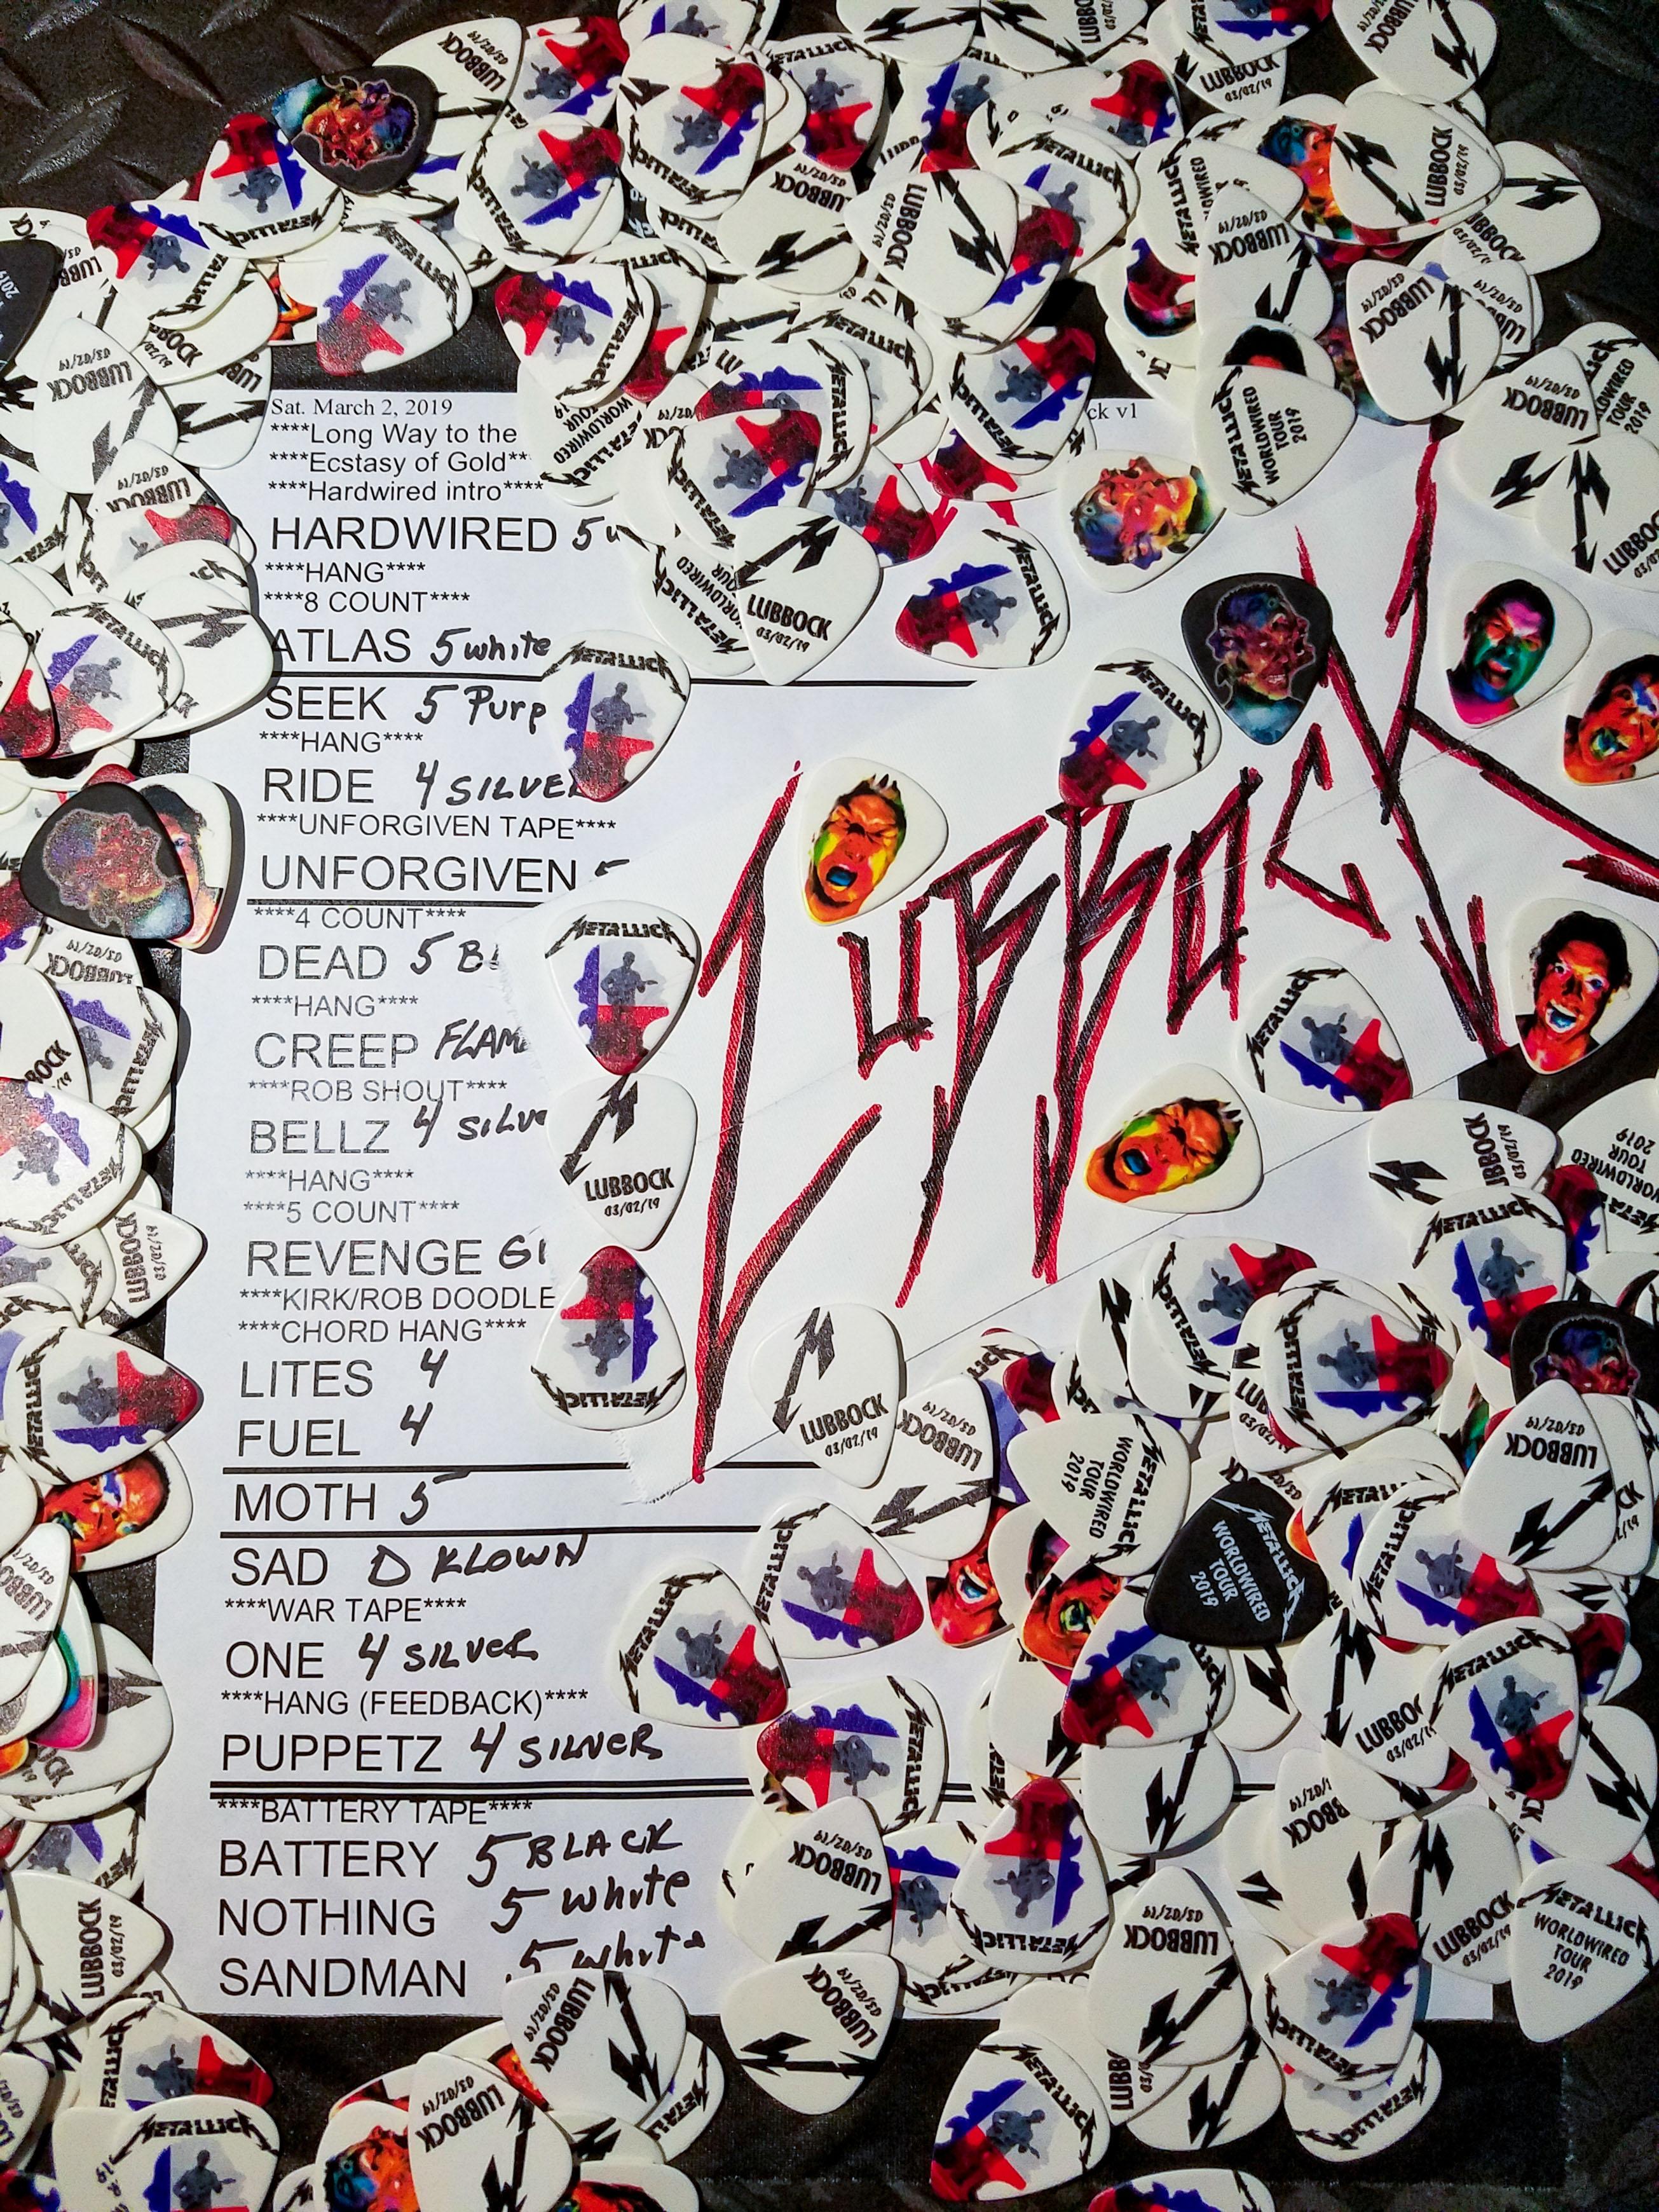 Sat. March 2, 2019
ck v1
****Long Way to the
****Ecstasy of Gold**
****Hardwired intro****
HARDWIRED 5
****HANG****
****8 COUNT****
ATLAS 5 white
SEEK 5 Purp
****HANG****
RIDE 4 SILVE
****UNFORGIVEN TAPE****
UNFORGIVEN 5
****4 COUNT****
DEAD 5 BL
****HANG****
CREEP FLAM
****ROB SHOUT****
BELLZ 4 SILV
****HANG****
****5 COUNT****
REVENGE
****KIRK/ROB DOODLE
****CHORD HANG****
LITES 4
FUEL 4
MOTH 5
SAD D KLOWN
****WAR TAPE****
ONE 4 SILVER
****HANG (FEEDBACK)****
PUPPETZ 4 SILVER
****BATTERY TAPE****
BATTERY 5 BLACK
NOTHING 5 white
SANDMAN 5 white
LUBBOCK
METALLICA
LUBBOCK
03/02/19
METALLICA
WORLDWIRED
TOUR
2019